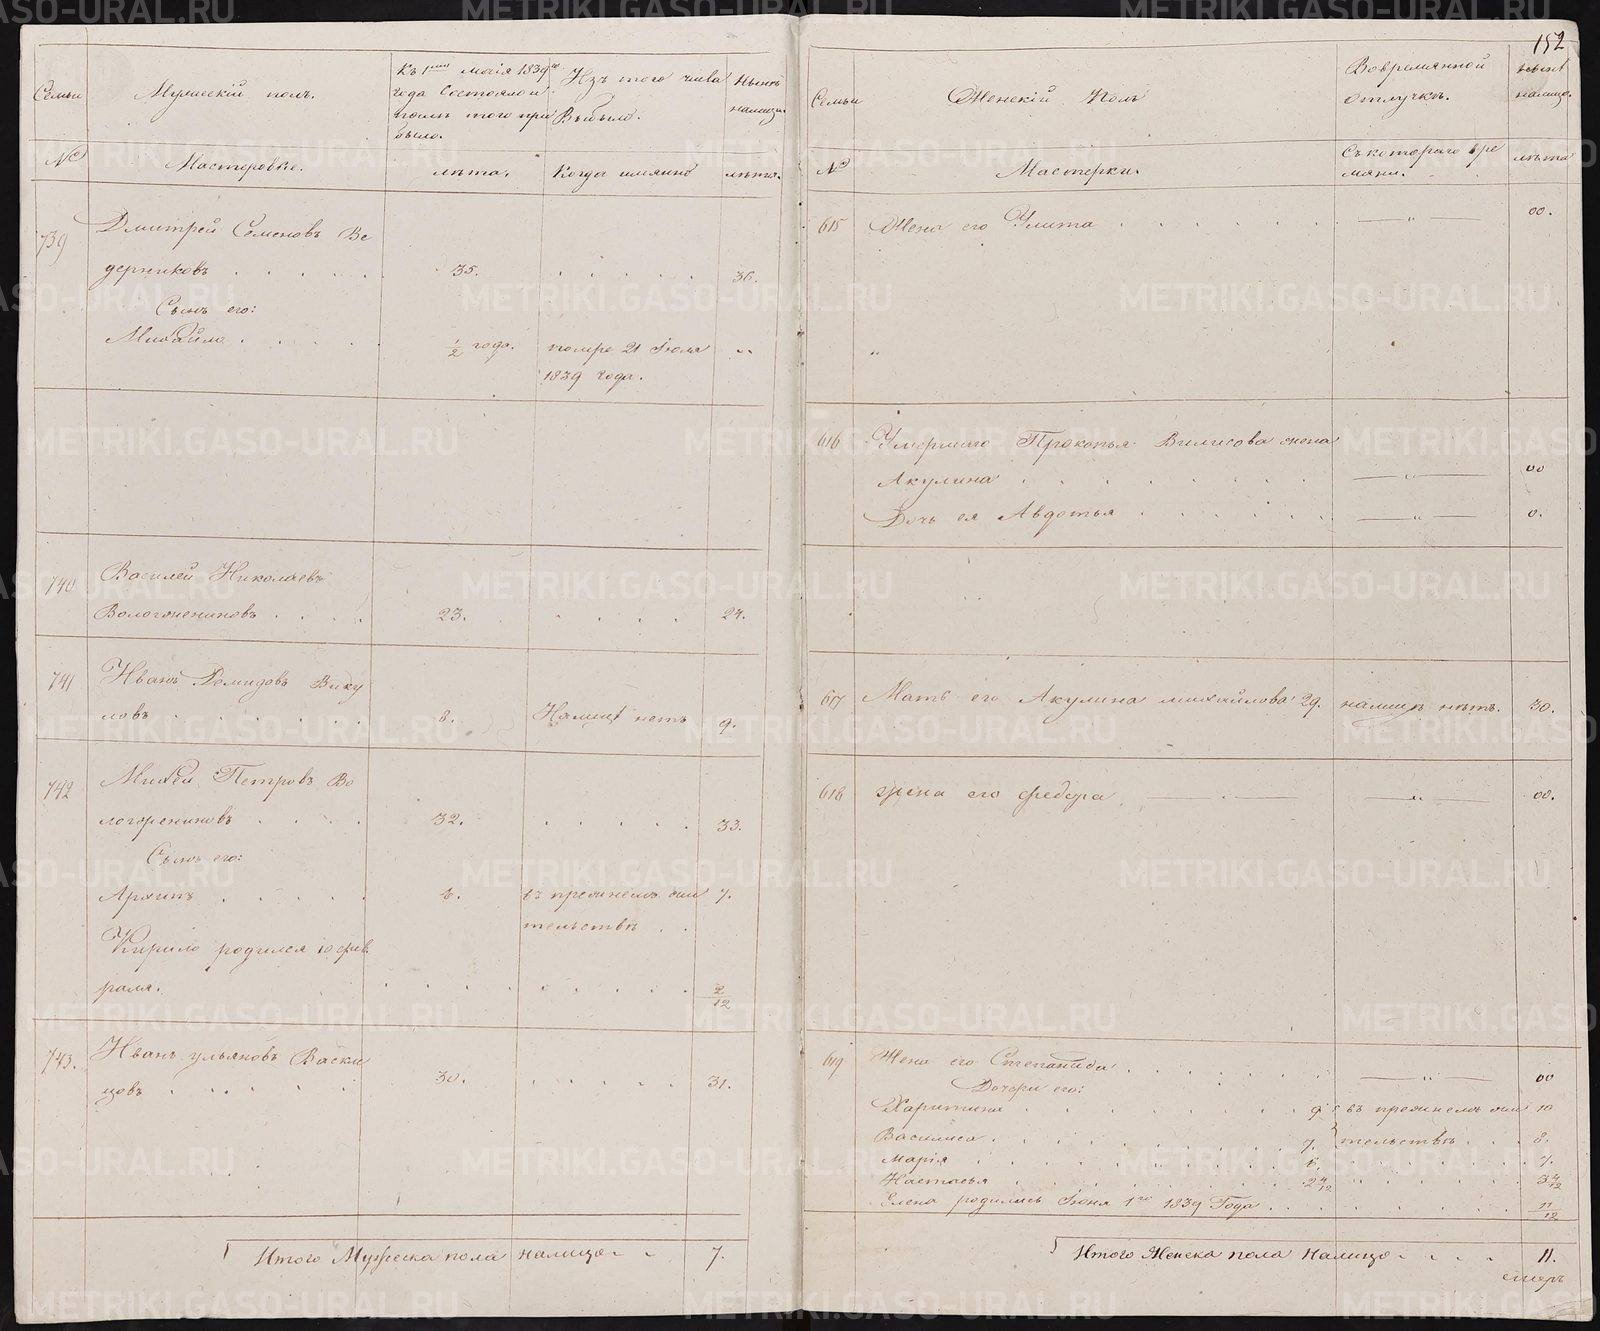 152
Семьи
Мужескій полъ.
Къ 1му маія 1839го
года состояло и
послѣ того при
было.
Изъ того числа
Выбыло.
Нынѣ
налицо.
№
Мастеровые.
лѣта.
Когда имянно
лѣта.
739
Дмитрей Семеновъ Ве
дерниковъ . . . . . 35. . . . . . 36.
Сынъ его:
Михайло . . . . . 1/2 года. помре 21 Іюля „
1839 года.
740
Василей Николаевъ
Вологжениновъ . . . . 23. . . . . . 24.
741
Иванъ Демидовъ Вику
ловъ . . . . . . 8. Налицѣ нетъ 9.
742
Михей Петровъ Во
логжениновъ . . . . 32. . . . . . 33.
Сынъ его:
Архипъ . . . . . 6. въ прежнемъ жи 7.
тельствѣ . .
Кирило родился 10 фев
раля. . . . . . . . 2/12
743.
Иванъ Ульяновъ Васки
цовъ . . . . . 30. . . . . . 31.
Итого Мужеска пола налицо . . 7.
Семьи
Женскій Полъ
Вовремянной
отлучкѣ.
нынѣ
налицо.
№
Мастерки.
Съ котораго вре
мяни.
лѣта
615 Жена его Улита . . . . . . — „ — 00.
„
616 Умершаго Прокопья Вилисова жена
Акулина . . . . . . . — „ — 00
Дочь ея Авдотья . . . . . — „ — 0.
617 Мать его Акулина михайлова 29. налицѣ нѣтъ. 30.
618 жена его федора — . — — „ — 00.
619 Жена его Степанида . . . . . . — „ — 00
Дочери его:
Харитина . . . . . . . 9 въ прежнемъ жи 10
Василиса . . . . . . . 7. тельствѣ . . . 8.
Марія . . . . . . . 6. . . . . . 7.
Настасья . . . . . . . 2 4/12 . . . . . 3 4/12
Елена родилась Іюня 1го 1839 Года . . . . . . . 11/12
Итого Женска пола налицо . . . . 11.